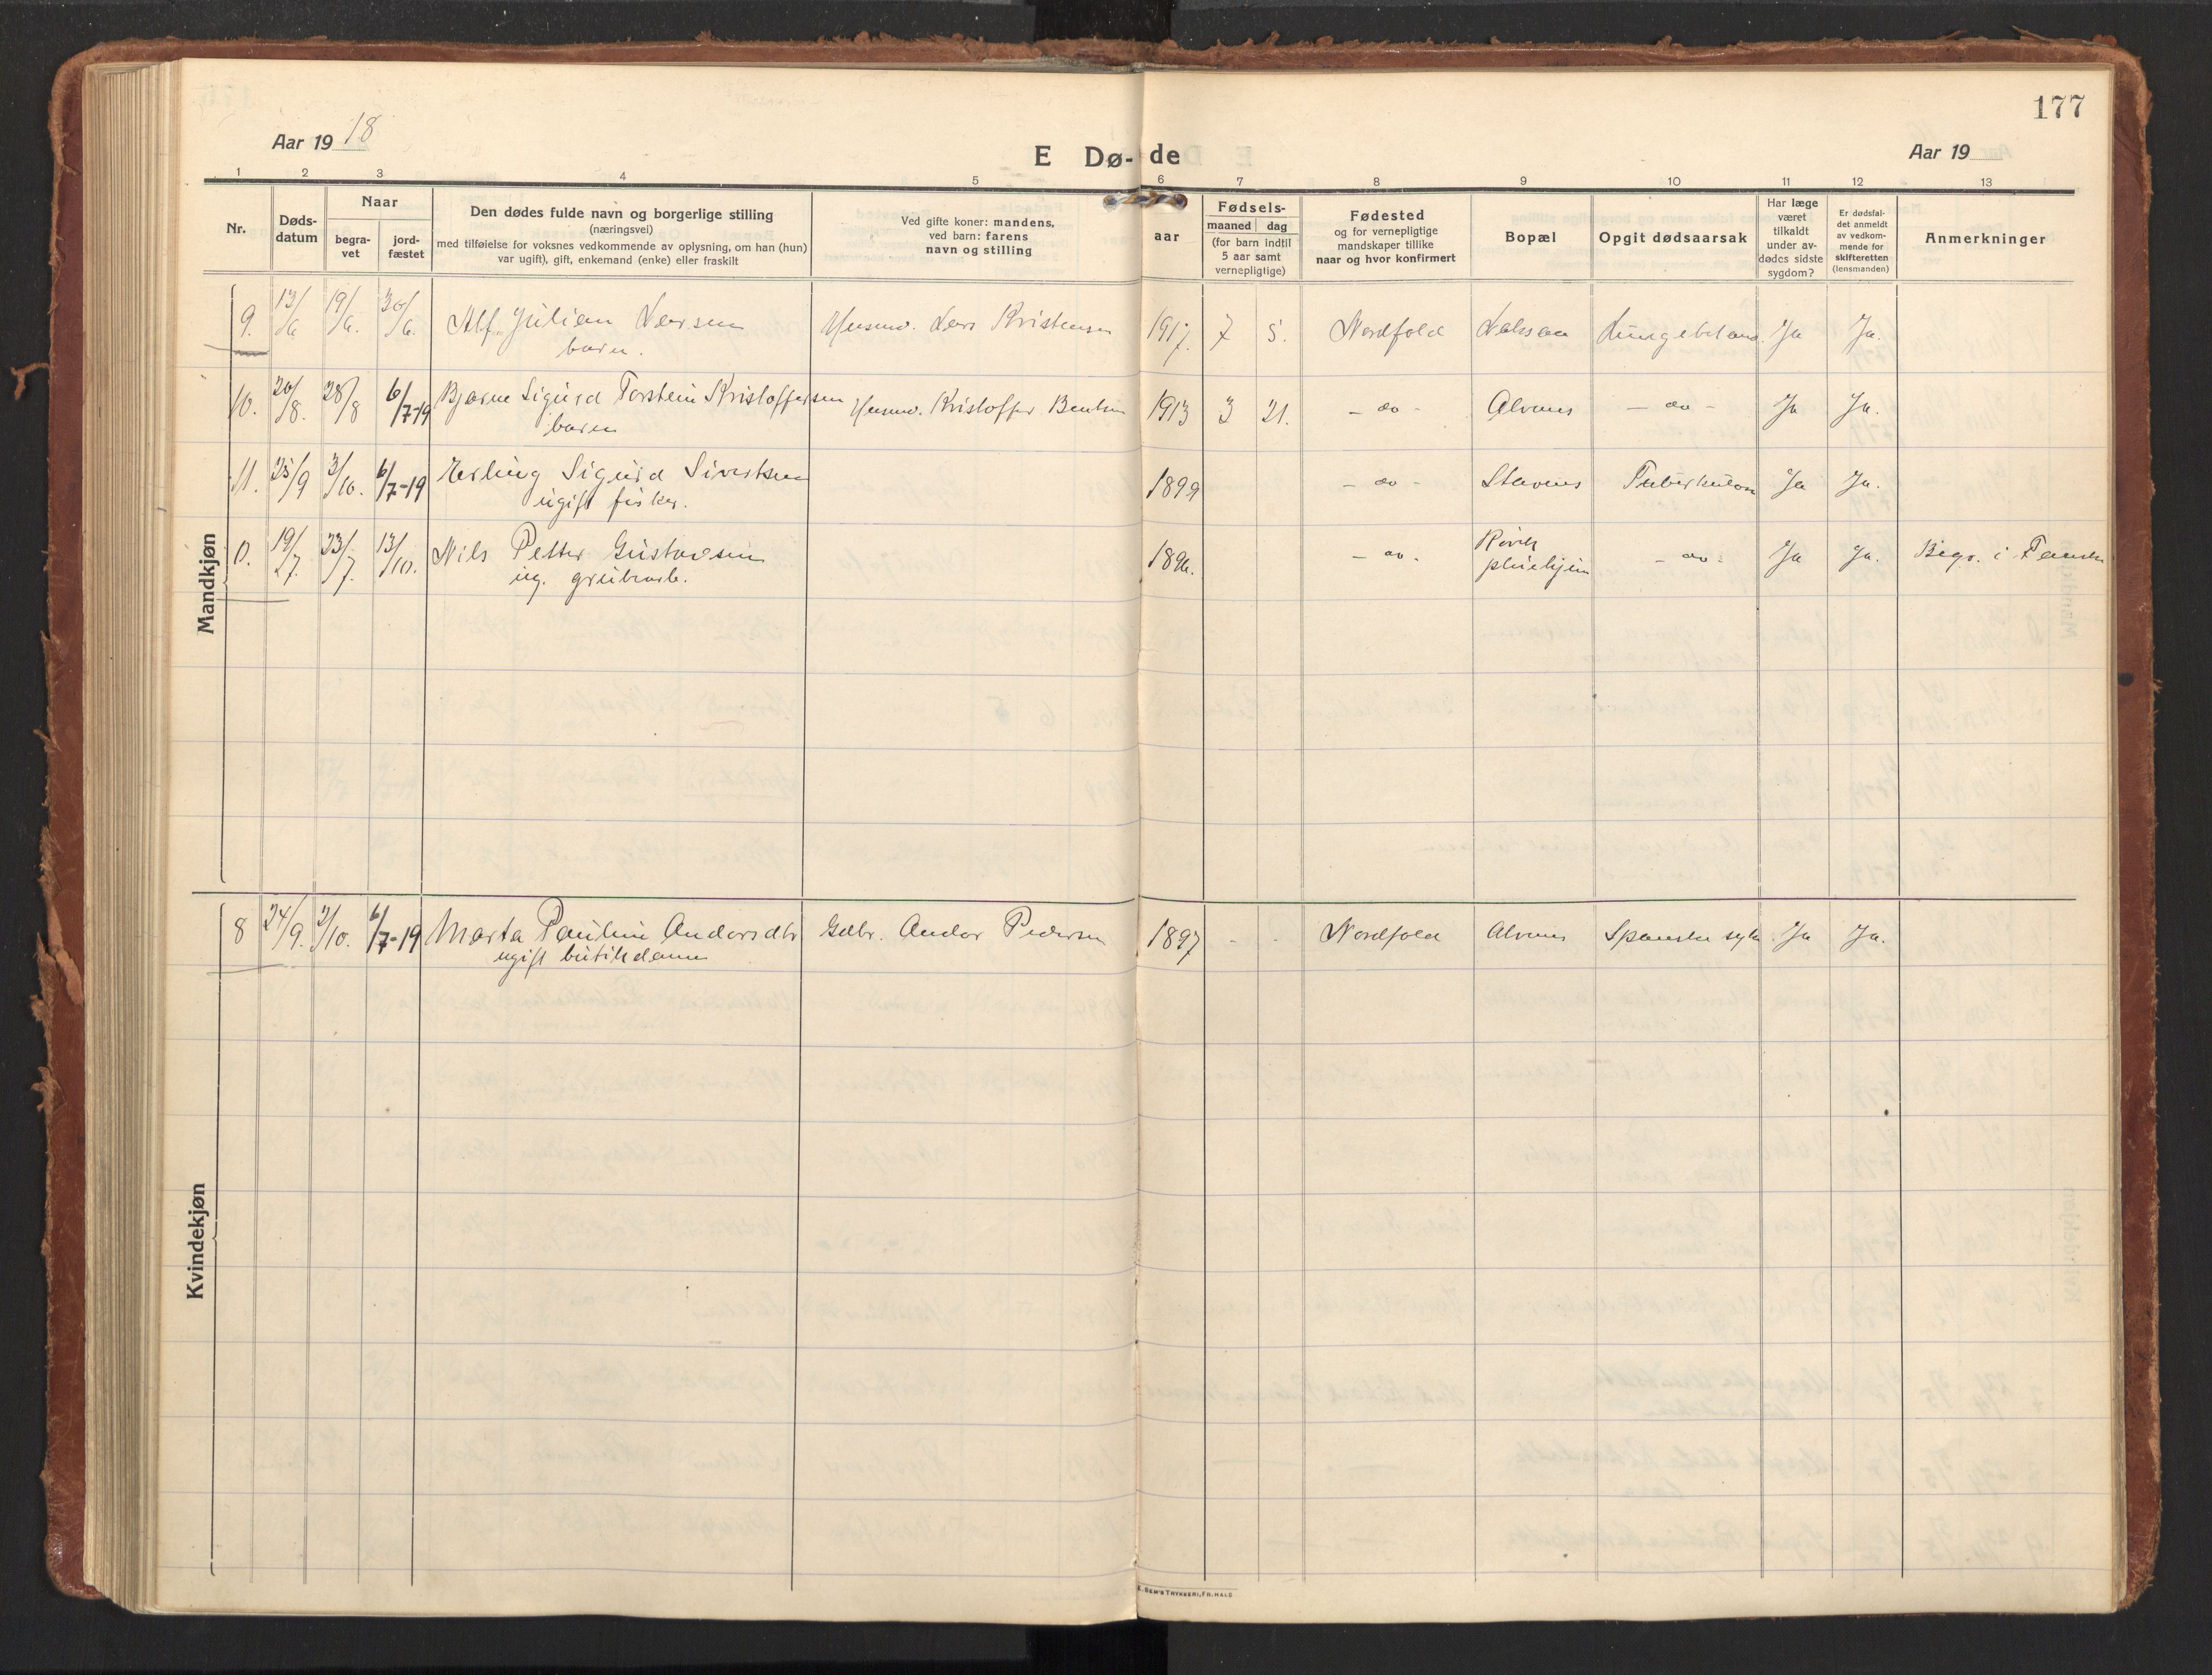 177
Aar 19 18
E Dø- de
Aar 19
1 2 3 4 5 6 7 8 9 10 11 12 13
Nr.
Døds-
datum
Naar
begra-
vet
jord-
fæstet
Den dødes fulde navn og borgerlige stilling
(næringsvei)
med tilføielse for voksnes vedkommende av oplysning, om han (hun)
var ugift), gift, enkemand (enke) eller fraskilt
Ved gifte koner: mandens,
ved barn: farens
navn og stilling
Fødsels-
aar
maaned dag
(for barn indtil
5 aar samt
vernepligtige)
Fødested
og for vernepligtige
mandskaper tillike
naar og hvor konfirmert
Bopæl
Opgit dødsaarsak
Har læge
været
tilkaldt
under av-
dødes sidste
sygdom?
Er dødsfal-
det anmeldt
av vedkom-
mende for
skifteretten
(lensmanden)
Anmerkninger
Mandkjøn
9. 13/6 19/6. 30/6. Alf Julian Larsen Husmv. Lars Kristensen 1917. 7 5. Nordfold Laksaa Lungebetænd. Ja Ja.
barn.
10. 20/8. 28/8 6/7-19 Bjarne Sigurd Torstein Kristoffersen Husmv. Kristoffer Bentsen 1913 3 21. - do - Alvenes - do - Ja Ja.
barn
11. 25/9 3/10. 6/7-19 Erling Sigurd Sivertsen 1899 - do - Stavnes Tuberkulose Ja Ja.
ugift fisker.
0. 19/7. 23/7. 13/10. Nils Petter Gustavsen 1896. - do - Røvik - do - Ja Ja. Begr. i Fauske
ug. grubearb. pleiehjem
Kvindekjøn
8 24/9. 3/10. 6/7-19 Marta Pauline Andorsdtr Gdbr. Andor Pedersen 1897 - - Nordfold Alvenes Spanske syke. Ja Ja.
ugift butikdame
E. SEM'S TRYKKERI, FR.HALD